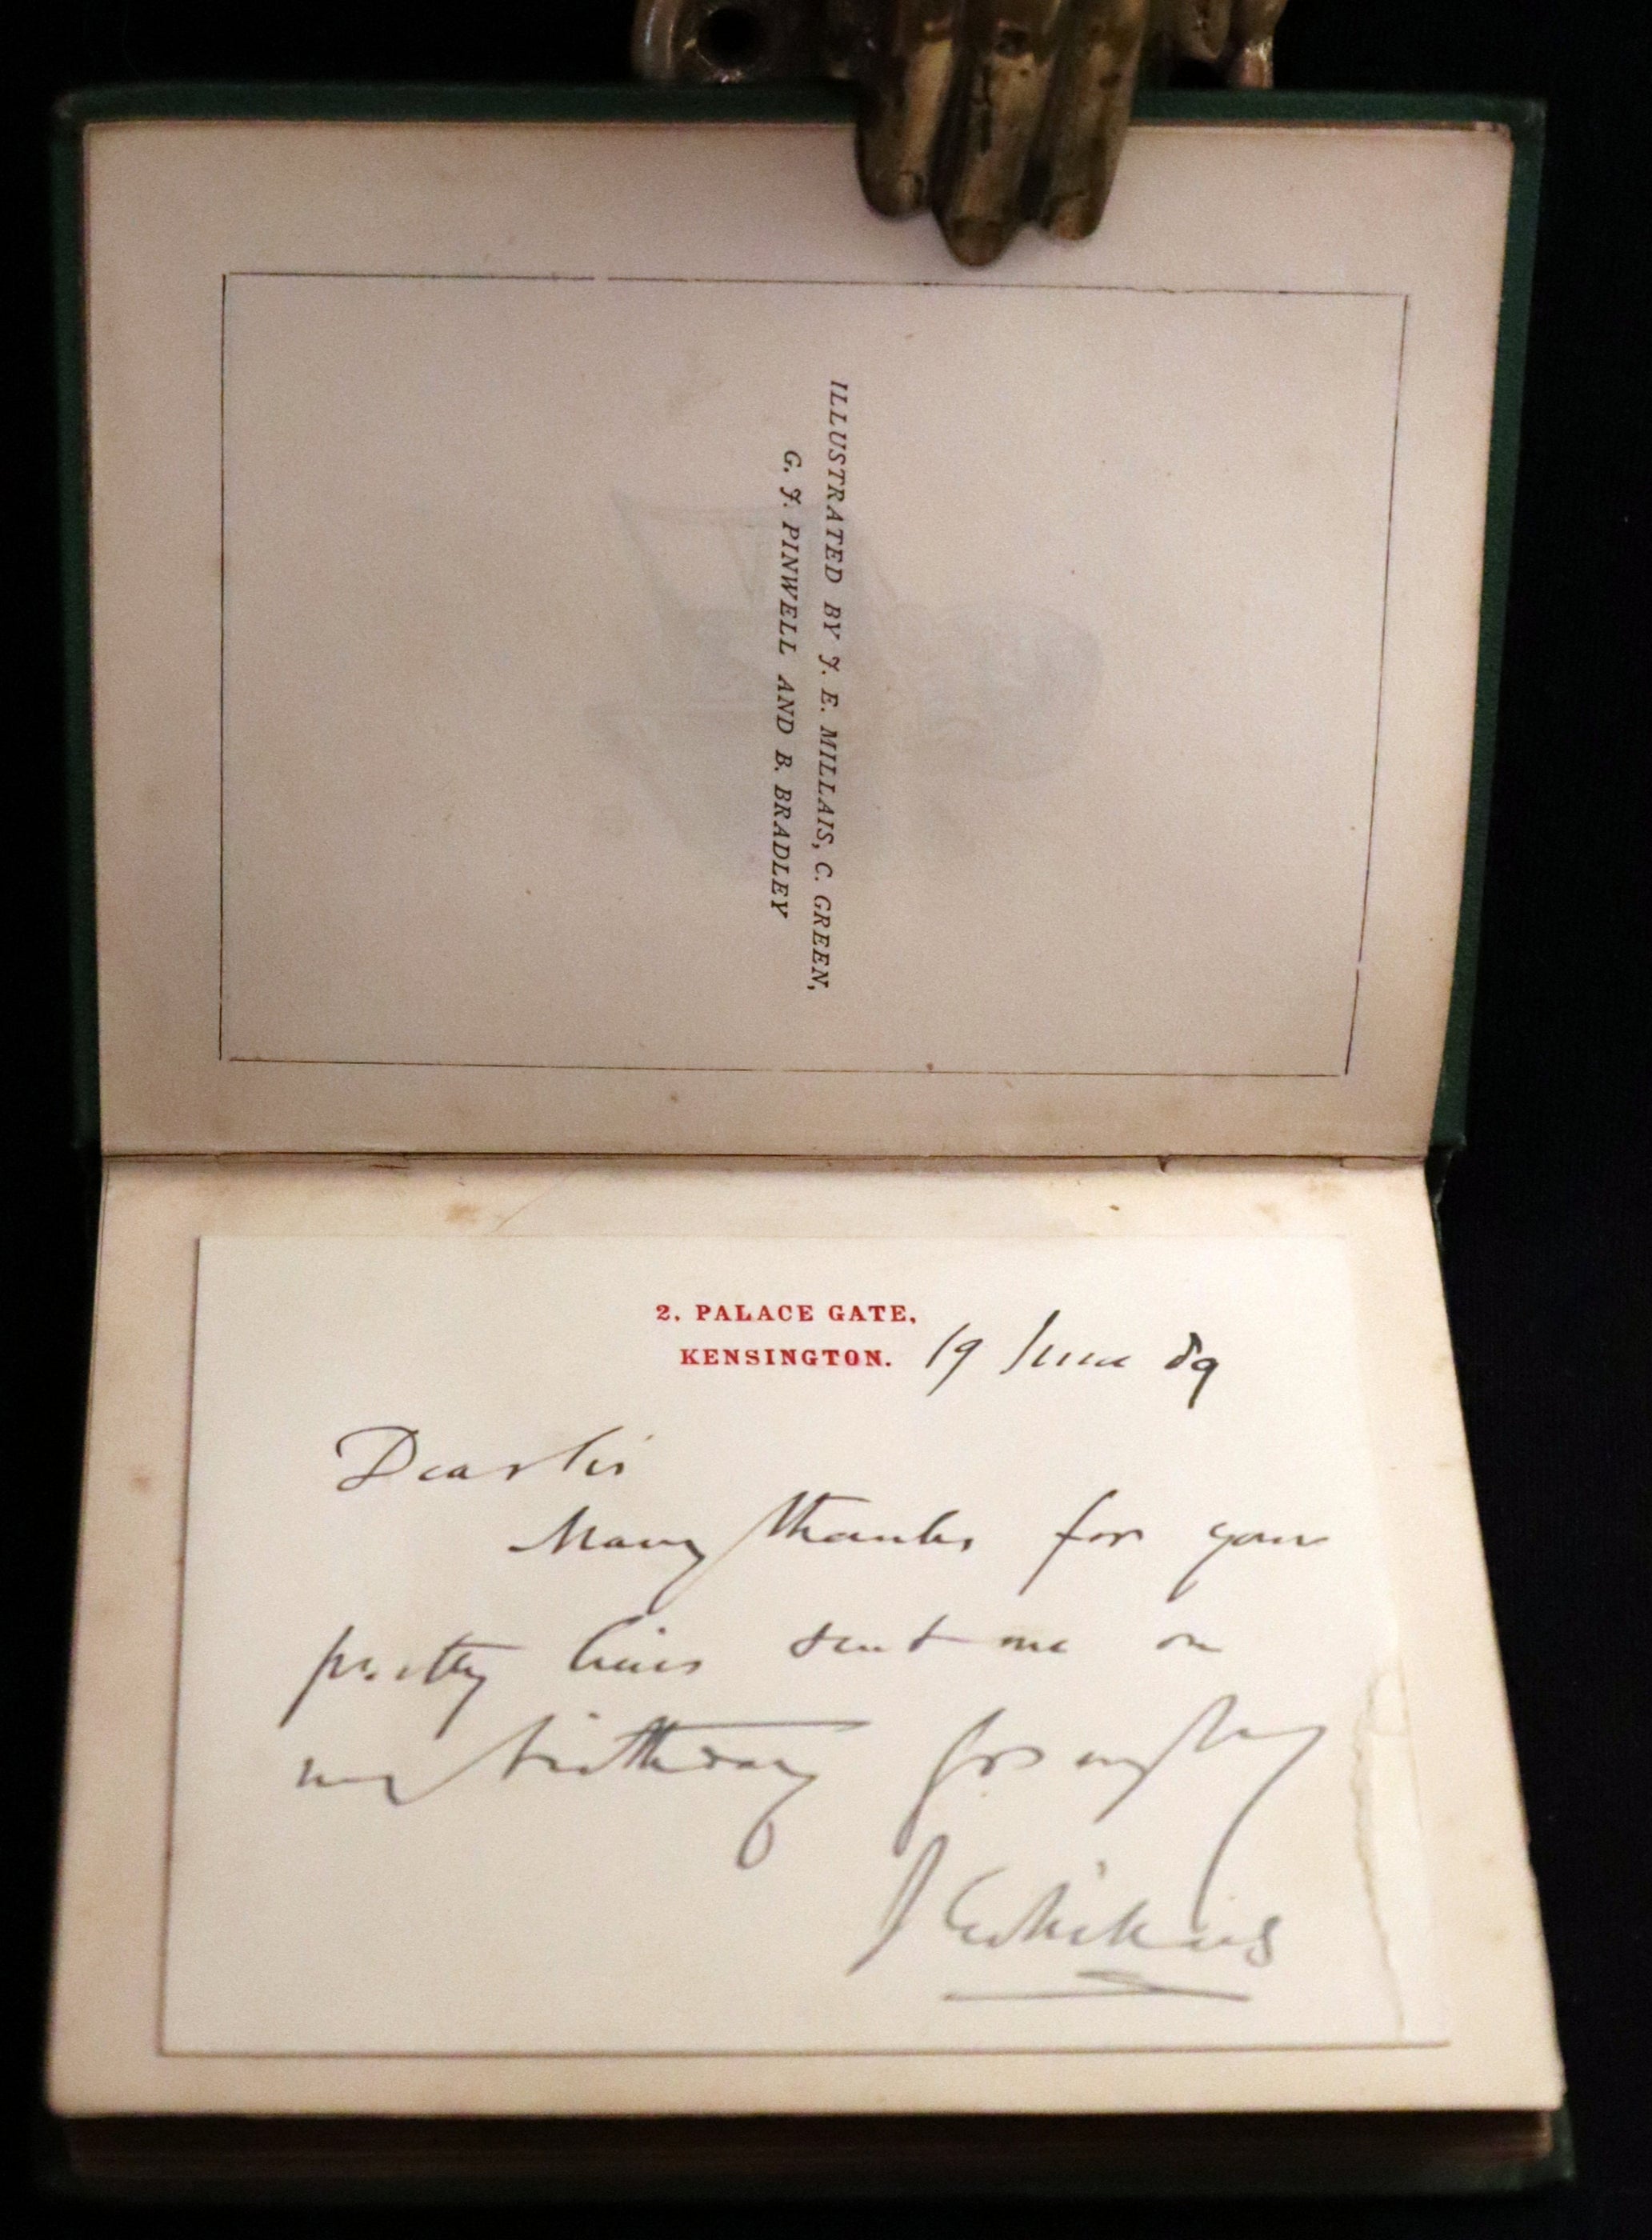 ILLUSTRATED BY J. E. MILLAIS, C. GREEN,
G. J. PINWELL AND B. BRADLEY
2, PALACE GATE,
KENSINGTON.
19 June 89
Dear Sir
Many thanks for your
pretty lines sent me on
my birthday
J E Millais